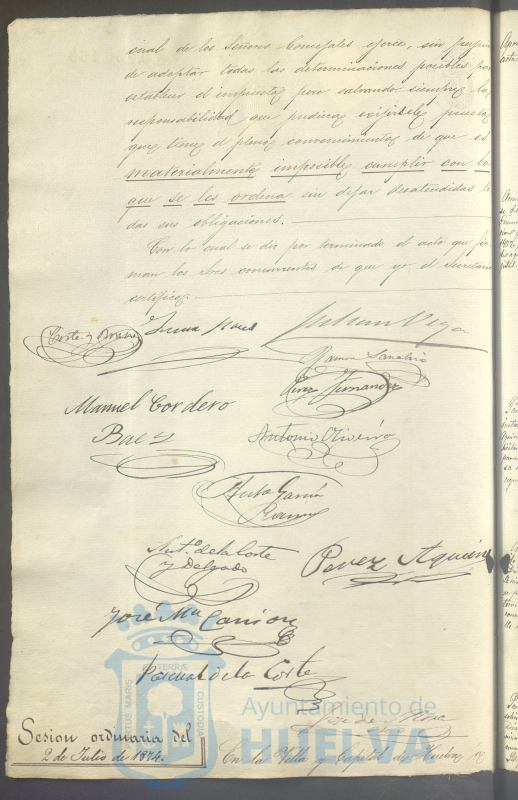 cual de los Señores Concejales ejerce, sin perjuicio
de adoptar todas las determinaciones posibles para
establecer el impuesto pero salvando siempre la
responsabilidad que pudiera exijirsele puesto
que tiene el pleno convencimiento de que es
materialmente imposible cumplir con lo
que se les ordena sin dejar desatendidas to
das sus obligaciones.
Con lo cual se dio por terminado el acto que fir
man los Sres concurrentes de que yo el Secretario
certifico.
Corte y Bravo
Julian Vega
Ramon Sanabria
Perez Hernandez
Manuel Cordero
Baez
Antonio Oliveira
García
Ramos
Ant.º de la Corte
y Delgado
Perez
José Mª Carrion
Pascual de la Corte
José de
Sesion ordinaria del
2 de Julio de 1874.
En la Villa y Capital de Huelva a
PORTUS MARIS ET TERRAE CUSTODIA
Ayuntamiento de
HUELVA